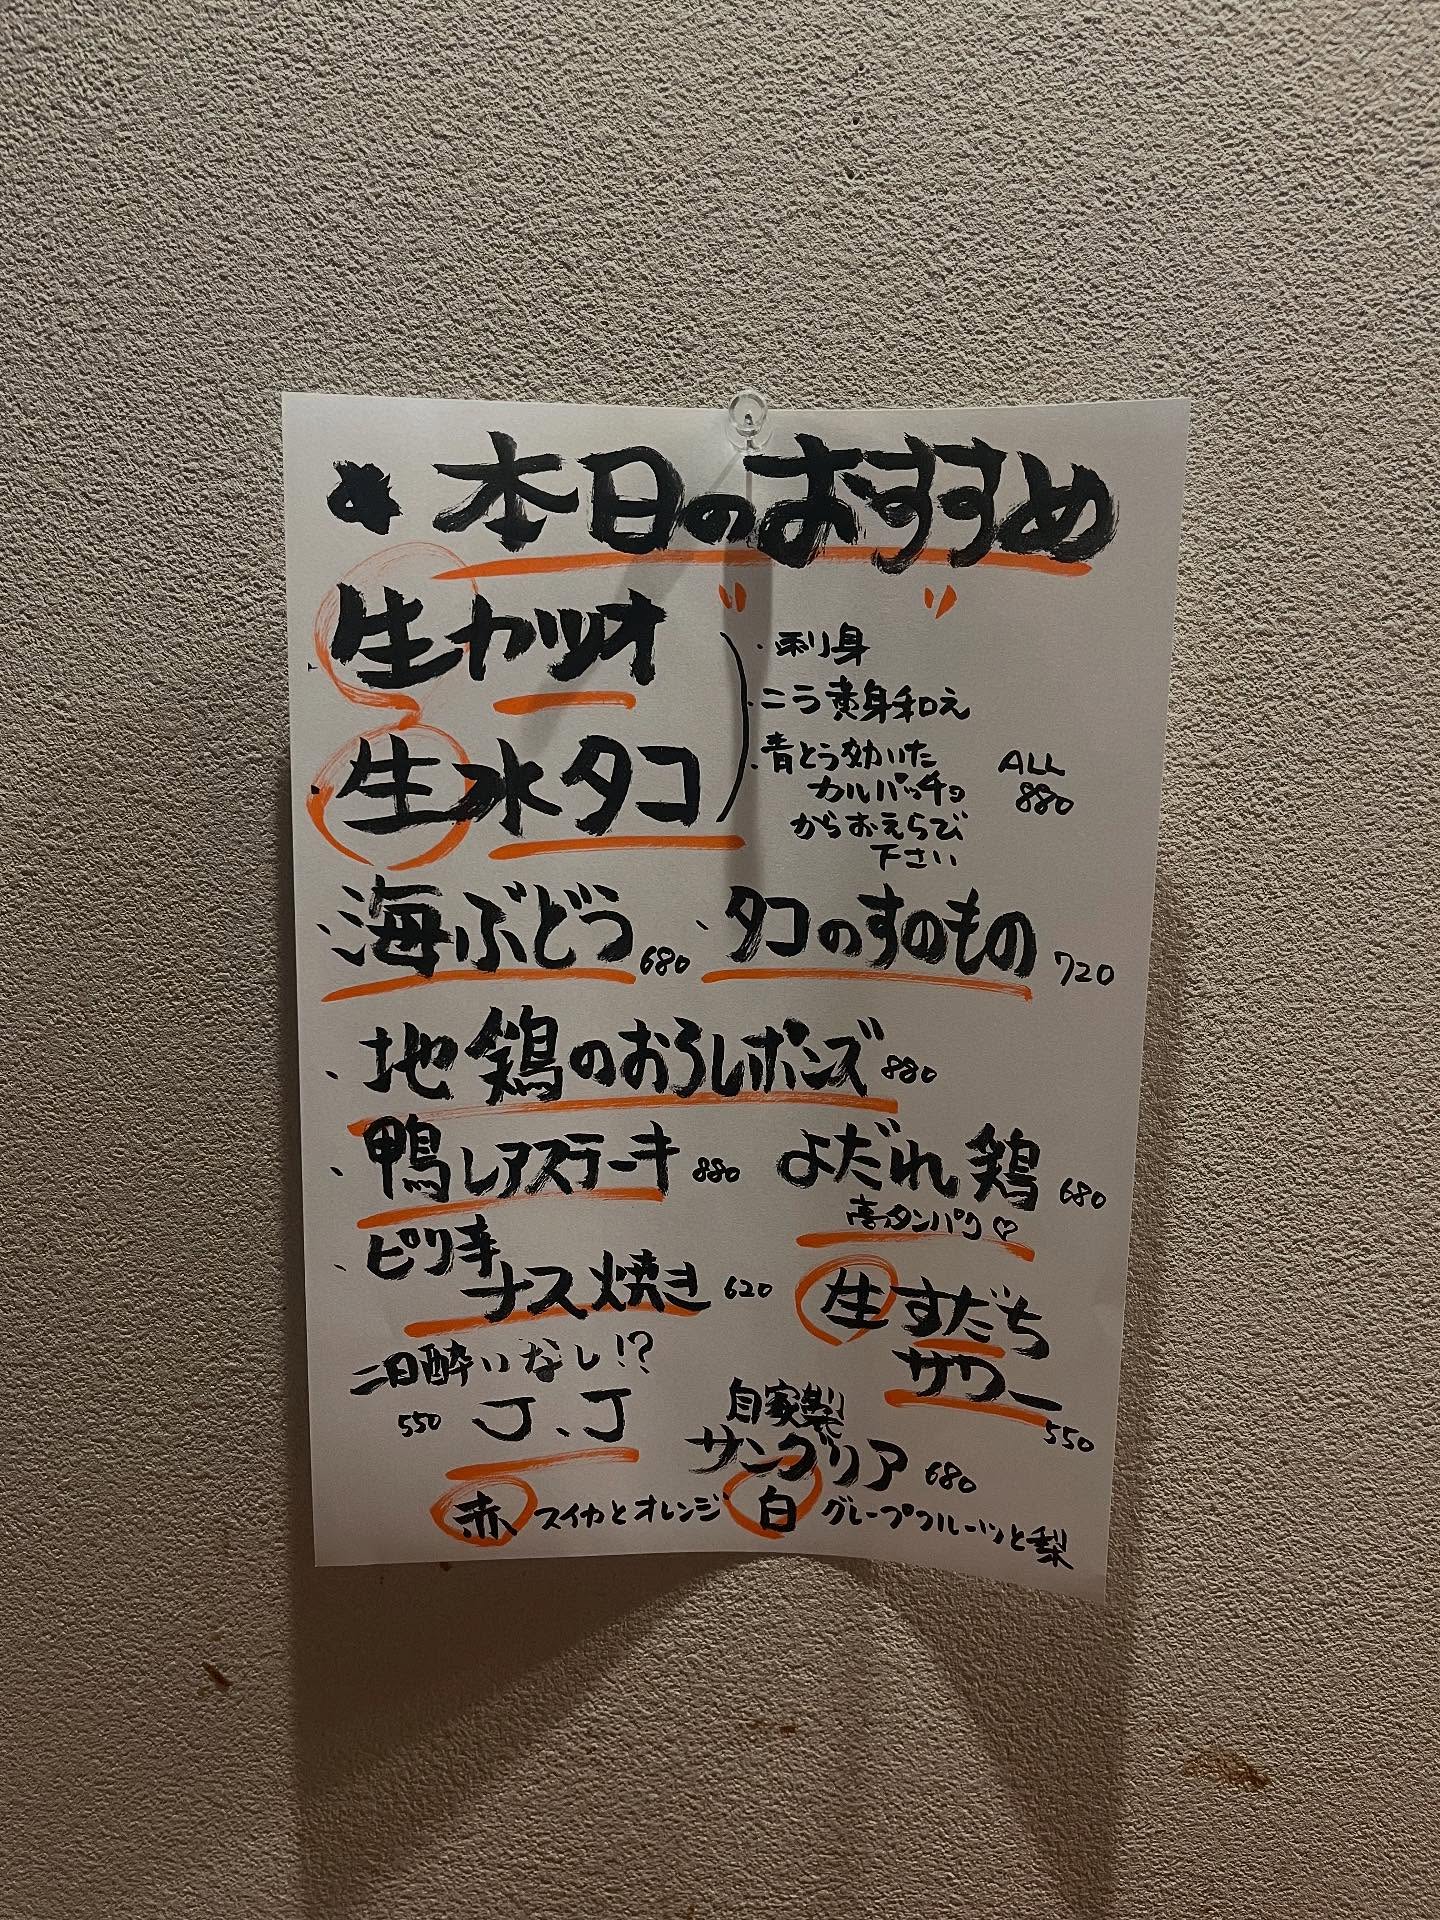 ★本日のおすすめ
・生カツオ
・生水タコ
・刺身
・ニラ黄身和え
・青とう効いた
カルパッチョ
からおえらび
下さい
ALL
880
・海ぶどう 680
・タコのすのもの 720
・地鶏のおろしポンズ 880
・鴨レアステーキ 880
よだれ鶏 680
高タンパク♡
・ピリ辛
ナス焼き 620
生すだち
サワー
550
二日酔いなし!?
550 J.J
自家製
サングリア 680
赤 スイカとオレンジ
白 グレープフルーツと梨